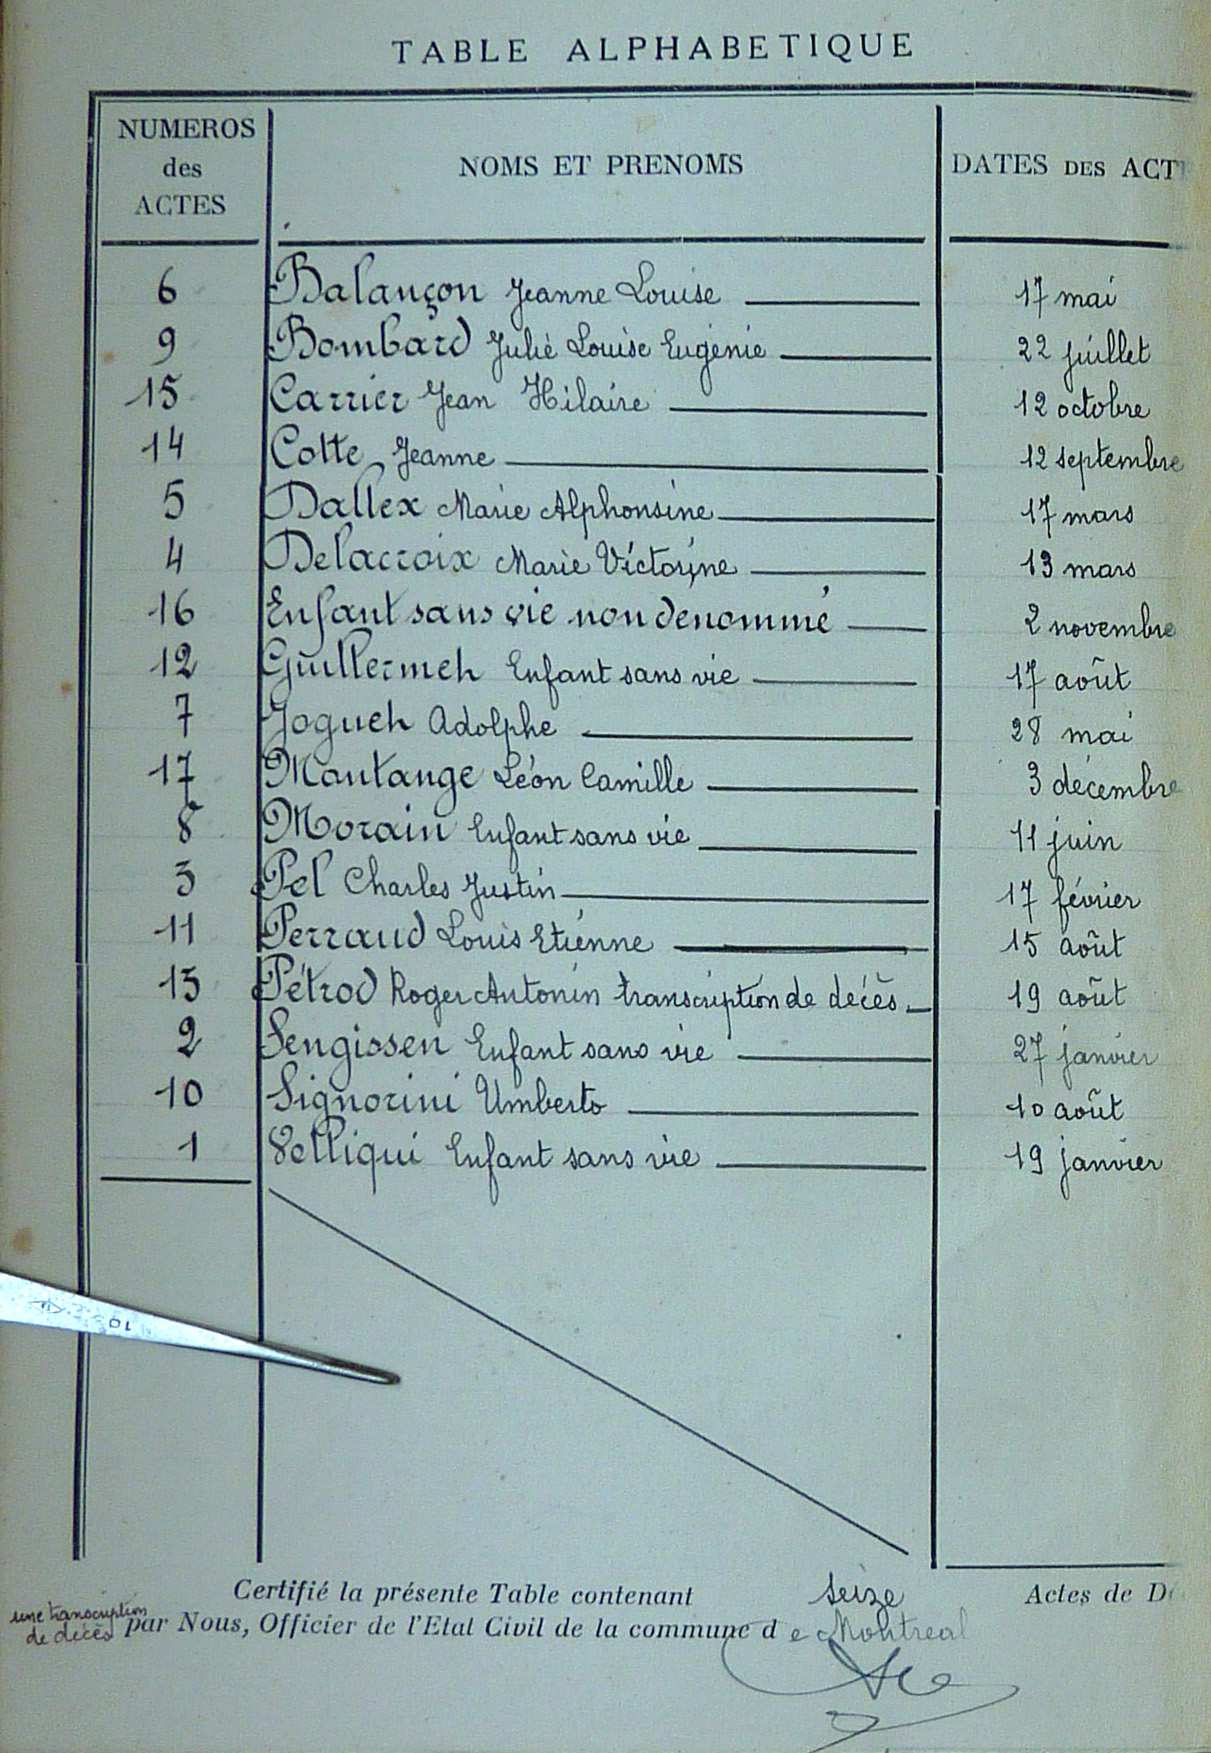 TABLE ALPHABETIQUE
NUMEROS des ACTES NOMS ET PRENOMS DATES DES ACT
6 Balançon Jeanne Louise 17 mai
9 Bombard Julie Louise Eugénie 22 juillet
15 Carrier Jean Hilaire 12 octobre
14 Cotte Jeanne 12 septembre
5 Dallex Marie Alphonsine 17 mars
4 Delacroix Marie Victorine 13 mars
16 Enfant sans vie non denommé 2 novembre
12 Guillermeh Enfant sans vie 17 août
7 Jogueh Adolphe 28 mai
17 Mantange Léon Camille 3 décembre
8 Morain Enfant sans vie 11 juin
3 Pel Charles Justin 17 février
11 Perraud Louis Etienne 15 août
13 Pétrod Roger Antonin transcription de décès 19 août
2 Sengissen Enfant sans vie 27 janvier
10 Signorini Umberto 10 août
1 Enfant sans vie 19 janvier
Certifié la présente Table contenant seize Actes de D
une transcription
de décès par Nous, Officier de l'Etat Civil de la commune de Montreal